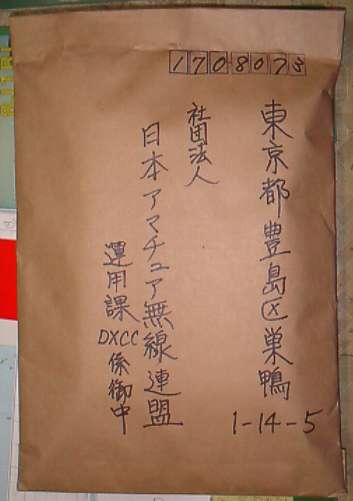 1708073
東京都豊島区巣鴨
1-14-5
社団法人
日本アマチュア無線連盟
運用課
DXCC係御中